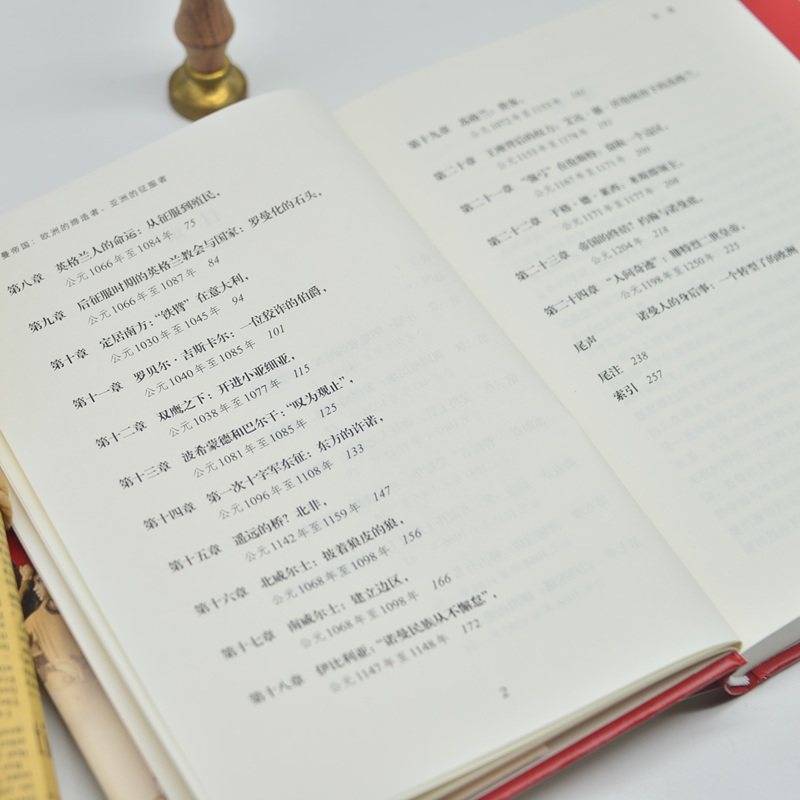 曼帝国：欧洲的缔造者、亚洲的征服者
第八章 英格兰人的命运：从征服到殖民，
公元1066年至1084年 75
第九章 后征服时期的英格兰教会与国家：罗曼化的石头，
公元1066年至1087年 84
第十章 定居南方：“铁臂”在意大利，
公元1030年至1045年 94
第十一章 罗贝尔·吉斯卡尔：一位狡诈的伯爵，
公元1040年至1085年 101
第十二章 双鹰之下：开进小亚细亚，
公元1038年至1077年 115
第十三章 波希蒙德和巴尔干：“叹为观止”，
公元1081年至1085年 125
第十四章 第一次十字军东征：东方的许诺，
公元1096年至1108年 133
第十五章 遥远的桥？北非，
公元1142年至1159年 147
第十六章 北威尔士：披着狼皮的狼，
公元1068年至1098年 156
第十七章 南威尔士：建立边区，
公元1068年至1098年 166
第十八章 伊比利亚：“诺曼民族从不懈怠”，
公元1147年至1148年 172
2
第十九章
第二十章 王座背后的权力：
第二十一章
公元1167年至1171年 200
第二十二章 于格·德·莱西：米斯郡领主，
公元1171年至1177年 208
第二十三章 帝国的终结？约翰与诺曼底，
公元1204年 218
第二十四章 “人间奇迹”：腓特烈二世皇帝，
公元1198年至1250年 225
尾声 诺曼人的身后事：一个转型了的欧洲
尾注 238
索引 257